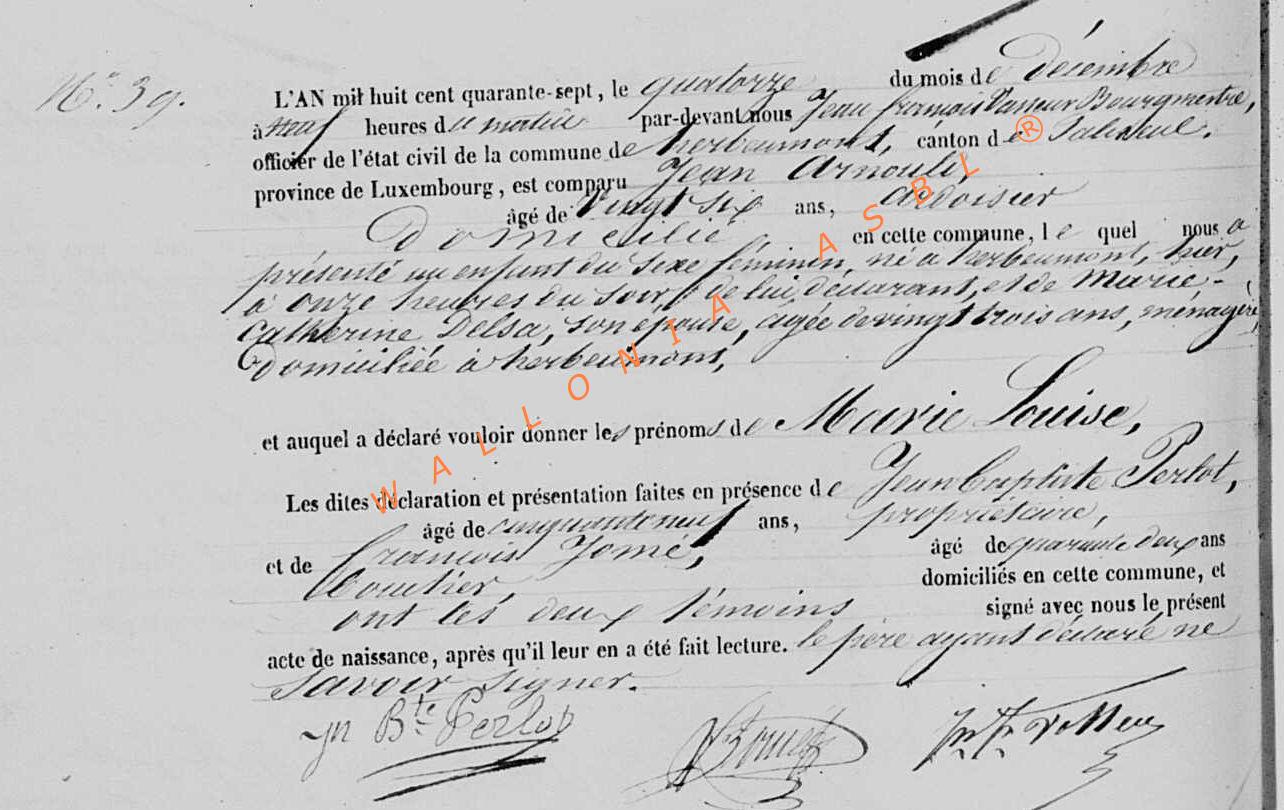 N.° 39.
L'AN mil huit cent quarante-sept, le quatorze du mois de décembre
à neuf heures du matin par-devant nous Jean françois Bourgmestre,
officier de l'état civil de la commune de herbeumont, canton de Paliseul.
province de Luxembourg, est comparu Jean Arnould,
âgé de Vingt six ans, ardoisier
Domicilié en cette commune, le quel nous a
présenté un enfant du sexe féminin, né à herbeumont, hier,
à onze heures du soir, de lui, déclarant, et de Marie-
Catherine Delsa, son épouse, agée de vingt trois ans, ménagère,
domiciliée à herbeumont,
et auquel a déclaré vouloir donner les prénoms de Marie Louise,
Les dites déclaration et présentation faites en présence de Jean Baptiste Perlot,
âgé de cinquante neuf ans, propriétaire,
et de françois Jomé, âgé de quarante deux ans
domiciliés en cette commune, et
ont les deux témoins signé avec nous le présent
acte de naissance, après qu'il leur en a été fait lecture. le père ayant déclaré ne
savoir signer.
Jn Bte Perlot
WALLONIA ASBL ®